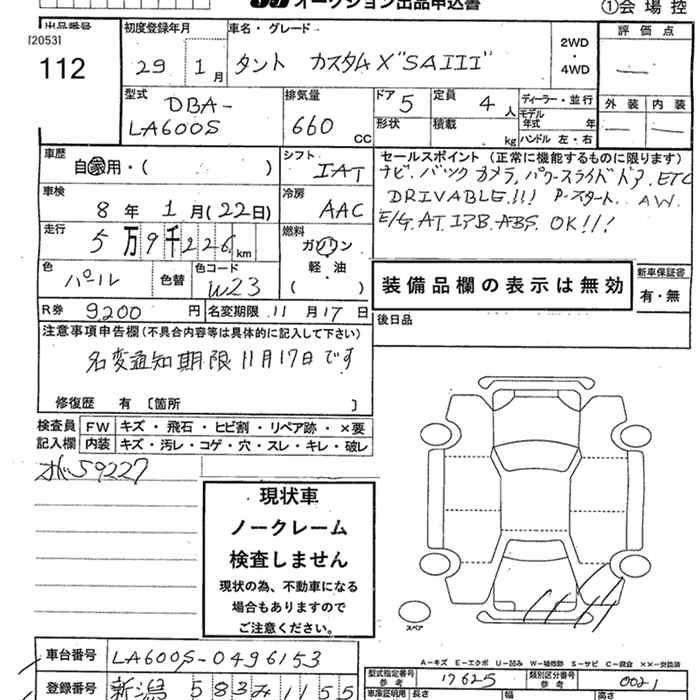 オークション出品申込書
①会場控
出品番号
[2053]
112
初度登録年月
29 1月
車名・グレード
タント カスタムX"SAIII"
2WD
・
4WD
評価点
型式
DBA-
LA600S
排気量
660 CC
ドア 5
定員 4人
形状
積載 kg
ディーラー・並行
モデル年式 年
ハンドル 左・右
外装 内装
車歴
自家用・( )
シフト
IAT
セールスポイント (正常に機能するものに限ります)
ナビ. バックカメラ, パワースライドドア. ETC
DRIVABLE!!! P-スタート. AW.
E/G. AT. ABS. OK!!!
車検
8年 1月(22日)
冷房
AAC
走行
5万9千226km
燃料
ガソリン
軽油
( )
色
パール
色替
色コード
W23
装備品欄の表示は無効
新車保証書
有・無
R券 9200円
名変期限 11月17日
後日品
注意事項申告欄(不具合内容等は具体的に記入して下さい)
名変通知期限11月17日です
修復歴 有 〔箇所 〕
検査員記入欄
FW キズ・飛石・ヒビ割・リペア跡・×要
内装 キズ・汚レ・コゲ・穴・スレ・キレ・破レ
59227
現状車
ノークレーム
検査しません
現状の為、不動車になる
場合もありますので
ご注意ください。
スペア
車台番号 LA600S-0496153
A-キズ E-エクボ U-凹み W-補修跡 S-サビ C-腐食 ××-交換済
型式指定番号 参考 17625
類別区分番号 参考 0021
登録番号 新潟 583 み 1155
車庫証明用
長さ
幅
高さ